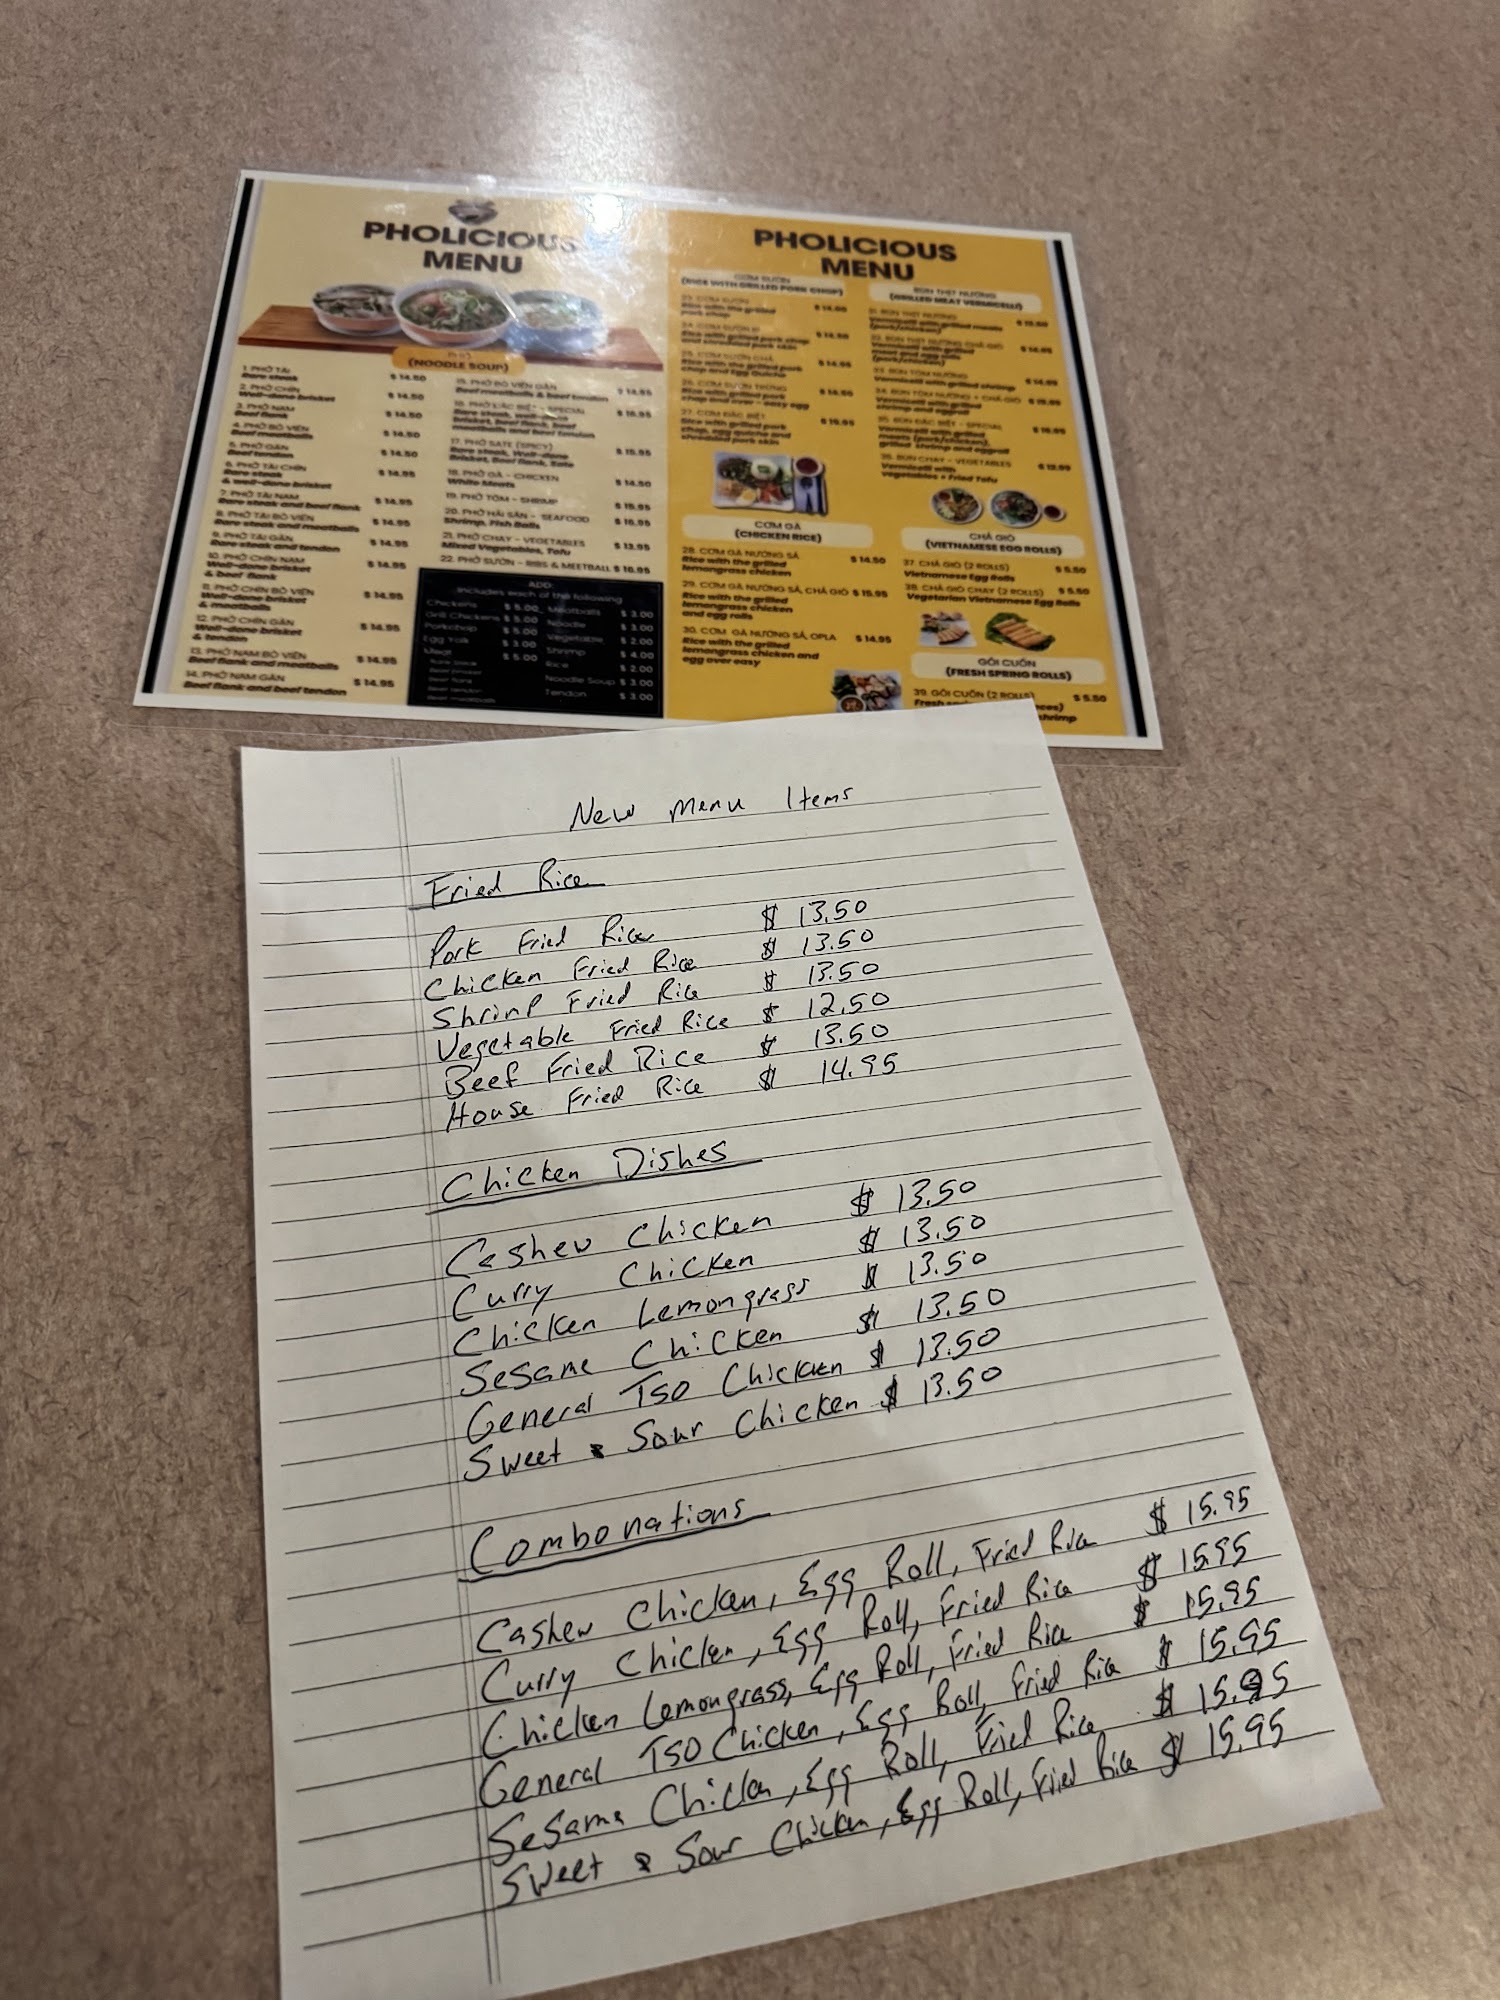 PHOLICIOUS
MENU
PHỞ
(NOODLE SOUP)
1. PHỞ TÁI $ 14.50
Rare steak
2. PHỞ CHÍN $ 14.50
Well-done brisket
3. PHỞ NAM $ 14.50
Beef flank
4. PHỞ BÒ VIÊN $ 14.50
Beef meatballs
5. PHỞ GÂN
Beef tendon
6. PHỞ TÁI CHÍN $ 14.95
Rare steak
& well-done brisket
7. PHỞ TÁI NAM $ 14.95
Rare steak and beef flank
8. PHỞ TÁI BÒ VIÊN $ 14.95
Rare steak and meatballs
9. PHỞ TÁI GÂN $ 14.95
Rare steak and tendon
10. PHỞ CHÍN NAM $ 14.95
Well-done brisket
& beef flank
11. PHỞ CHÍN BÒ VIÊN $ 14.95
Well-done brisket
& meatballs
12. PHỞ CHÍN GÂN $ 14.95
Well-done brisket
& tendon
13. PHỞ NAM BÒ VIÊN $ 14.95
Beef flank and meatballs
14. PHỞ NAM GÂN $ 14.95
Beef flank and beef tendon
15. PHỞ BÒ VIÊN GÂN $ 14.95
Beef meatballs & beef tendon
16. PHỞ ĐẶC BIỆT - SPECIAL $ 16.95
Rare steak, well-done
brisket, beef flank, beef
meatballs and beef tendon
17. PHỞ SATE (SPICY) $ 15.95
Rare steak, Well-done
Brisket, Beef flank, Sate
18. PHỞ GÀ - CHICKEN $ 14.50
White Meats
19. PHỞ TÔM - SHRIMP $ 15.95
20. PHỞ HẢI SẢN - SEAFOOD $ 16.95
Shrimp, Fish Balls
21. PHỞ CHAY - VEGETABLES $ 13.95
Mixed Vegetables, Tofu
22. PHỞ SƯỜN - RIBS & MEETBALL $ 16.95
ADD:
Includes each of the following
Chickens $ 5.00
Grill Chickens $ 5.00
Porkchop $ 5.00
Egg Yolk $ 3.00
Meat $ 5.00
Rare steak
Beef flank
Beef tendon
Beef meatballs
Meatballs $ 3.00
Noodle $ 3.00
Vegetable $ 2.00
Shrimp $ 4.00
Rice $ 2.00
Noodle Soup $ 3.00
Tendon $ 3.00
PHOLICIOUS
MENU
CƠM SƯỜN
(RICE WITH GRILLED PORK CHOP)
23. CƠM SƯỜN
Rice with the grilled
pork chop
24. CƠM SƯỜN BÌ
Rice with grilled pork chop
and shredded pork skin
25. CƠM SƯỜN CHẢ $ 14.95
Rice with the grilled pork
chop and Egg Quiche
26. CƠM SƯỜN TRỨNG $ 14.50
Rice with grilled pork
chop and over - easy egg
27. CƠM ĐẶC BIỆT
Rice with grilled pork
chop, egg quiche and
shredded pork skin
CƠM GÀ
(CHICKEN RICE)
28. CƠM GÀ NƯỚNG SẢ $ 14.50
Rice with the grilled
lemongrass chicken
29. CƠM GÀ NƯỚNG SẢ, CHẢ GIÒ $ 15.95
Rice with the grilled
lemongrass chicken
and egg rolls
30. CƠM GÀ NƯỚNG SẢ, OPLA $ 14.95
Rice with the grilled
lemongrass chicken and
egg over easy
BÚN THỊT NƯỚNG
(GRILLED MEAT VERMICELLI)
31. BÚN THỊT NƯỚNG
Vermicelli with grilled meats
(pork/chicken)
32. BÚN THỊT NƯỚNG CHẢ GIÒ
Vermicelli with grilled
meat and egg rolls
(pork/chicken)
33. BÚN TÔM NƯỚNG
Vermicelli with grilled shrimp
34. BÚN TÔM NƯỚNG + CHẢ GIÒ
Vermicelli with grilled
shrimp and eggroll
35. BÚN ĐẶC BIỆT - SPECIAL
Vermicelli with grilled
meats (pork/chicken),
grilled shrimp and eggroll
36. BÚN CHAY - VEGETABLES
Vermicelli with
Vegetables + Fried Tofu
CHẢ GIÒ
(VIETNAMESE EGG ROLLS)
37. CHẢ GIÒ (2 ROLLS) $ 5.50
Vietnamese Egg Rolls
38. CHẢ GIÒ CHAY (2 ROLLS) $ 5.50
Vegetarian Vietnamese Egg Rolls
GỎI CUỐN
(FRESH SPRING ROLLS)
39. GỎI CUỐN (2 ROLLS) $ 5.50
Fresh
shrimp
New Menu Items
Fried Rice
Pork Fried Rice $ 13.50
Chicken Fried Rice $ 13.50
Shrimp Fried Rice $ 13.50
Vegetable Fried Rice $ 12.50
Beef Fried Rice $ 13.50
House Fried Rice $ 14.95
Chicken Dishes
Cashew Chicken $ 13.50
Curry Chicken $ 13.50
Chicken Lemongrass $ 13.50
Sesame Chicken $ 13.50
General Tso Chicken $ 13.50
Sweet & Sour Chicken $ 13.50
Combonations
Cashew Chicken, Egg Roll, Fried Rice $ 15.95
Curry Chicken, Egg Roll, Fried Rice $ 15.95
Chicken Lemongrass, Egg Roll, Fried Rice $ 15.95
General Tso Chicken, Egg Roll, Fried Rice $ 15.95
Sesame Chicken, Egg Roll, Fried Rice $ 15.95
Sweet & Sour Chicken, Egg Roll, Fried Rice $ 15.95